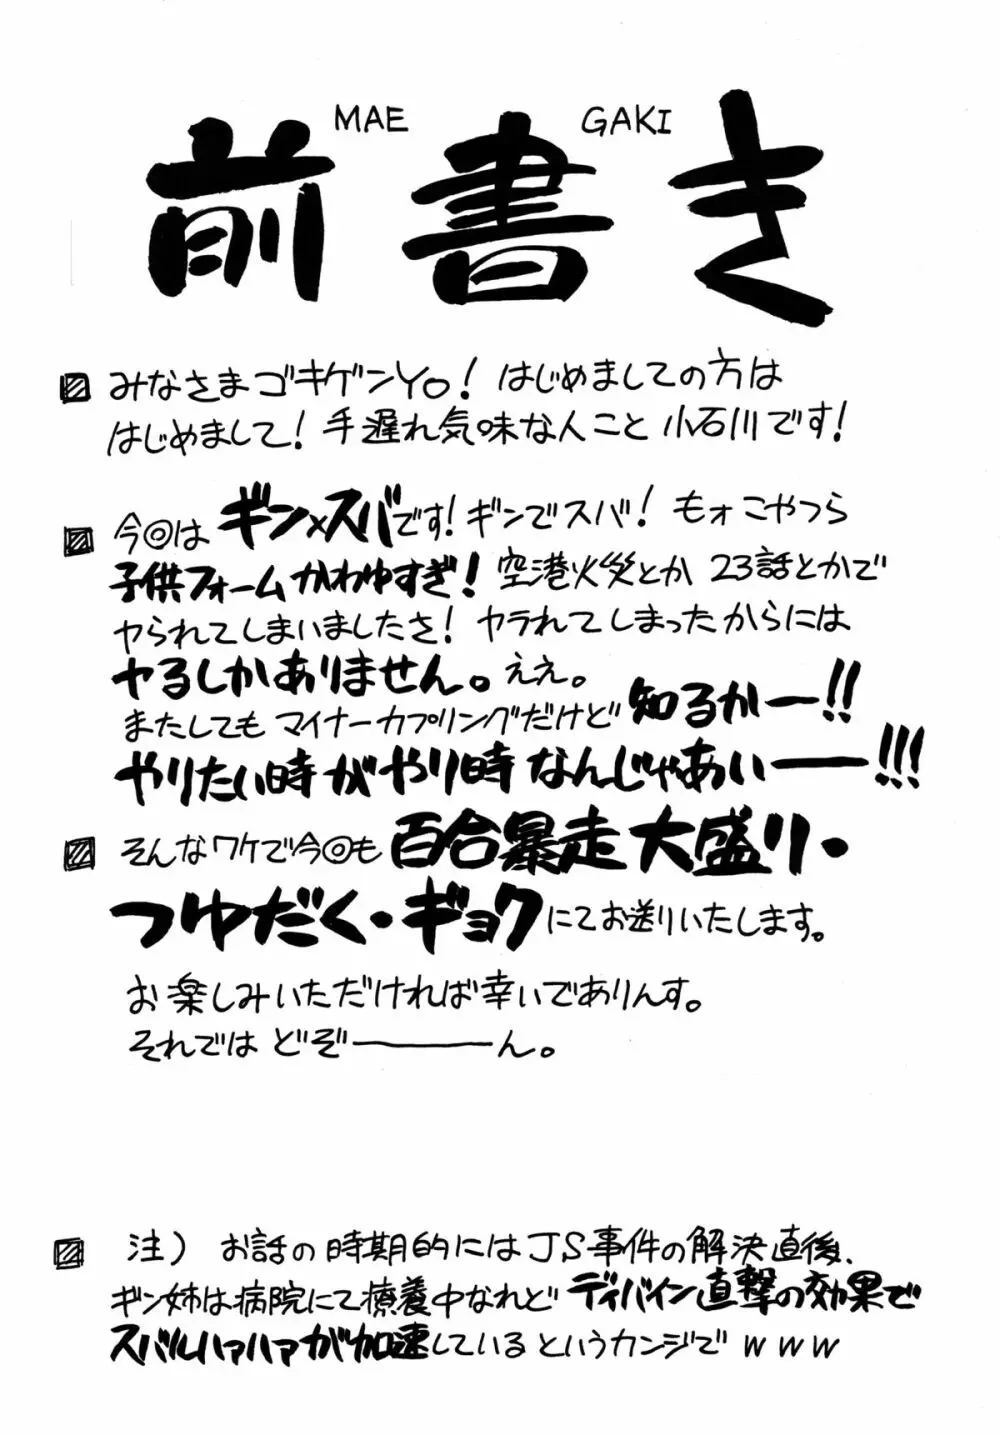 MAE GAKI
前書き
みなさまゴキゲンYO! はじめましての方は
はじめまして! 手遅れ気味な人こと小石川です!
今回はギン×スバです! ギンでスバ! もォこやつら
子供フォームかわゆすぎ! 空港火災とか23話とかで
ヤられてしまいましたさ! ヤラれてしまったからには
ヤるしかありません。ええ。
またしてもマイナーカプリングだけど知るかー!!
やりたい時がやり時なんじゃあいー!!!
そんなワケで今回も百合暴走大盛り・
つゆだく・ギョクにてお送りいたします。
お楽しみいただければ幸いでありんす。
それではどぞーーん。
注) お話の時期的にはJS事件の解決直後、
ギン姉は病院にて療養中なれどディバイン直撃の効果で
スバルハァハァが加速しているというカンジでwww